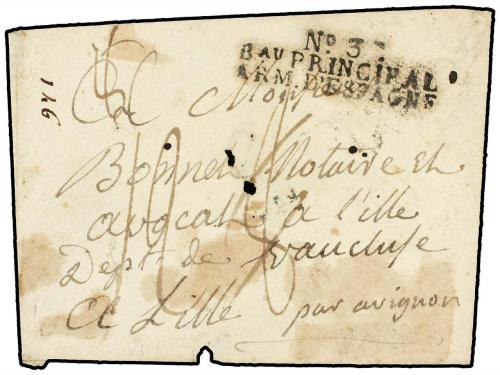 No 3
Bau PRINCIPAL
ARM. D'ESPAGNE
A Monsieur
Bonnet Notaire et
avocatt à l'ille
Dept de vaucluse
A Lille par avignon